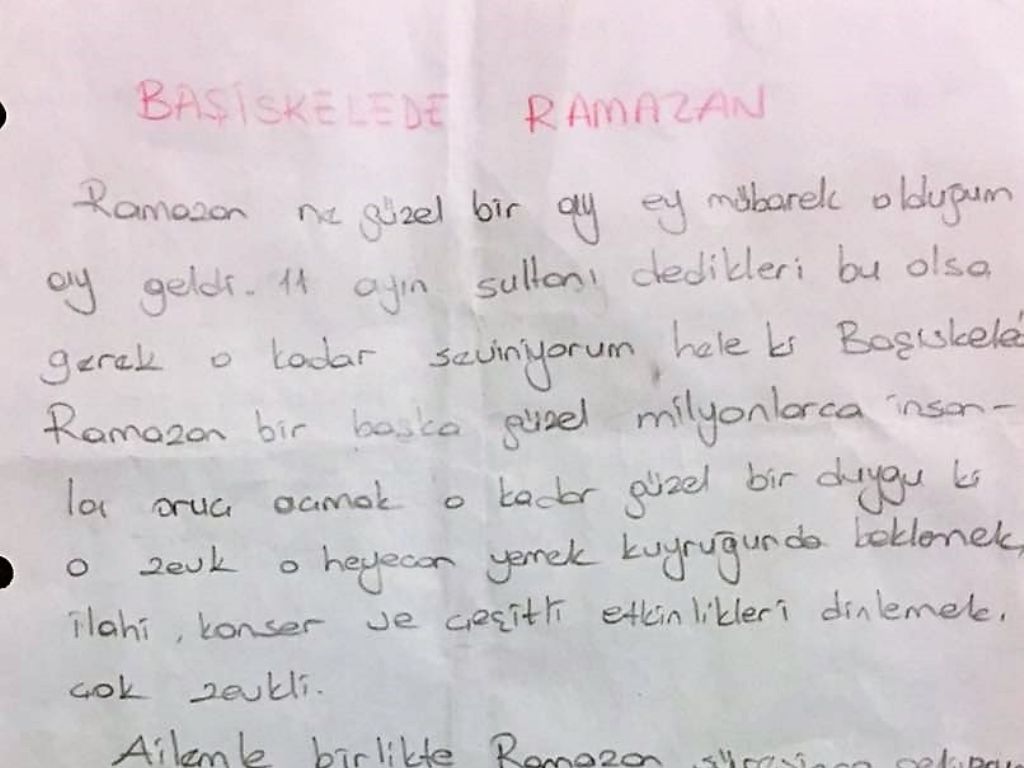 BAŞİSKELEDE RAMAZAN
Ramazan ne güzel bir ay ey mübarek olduğum
ay geldi. 11 ayın sultanı dedikleri bu olsa
gerek o kadar seviniyorum hele ki Başiskele
Ramazan bir başka güzel milyonlarca insan-
la oruc acmak o kadar güzel bir duygu ki
o zevk o heyecan yemek kuyruğunda beklemek,
ilahi, konser ve çeşitli etkinlikleri dinlemek.
çok zevkli.
Ailemle birlikte Ramazan